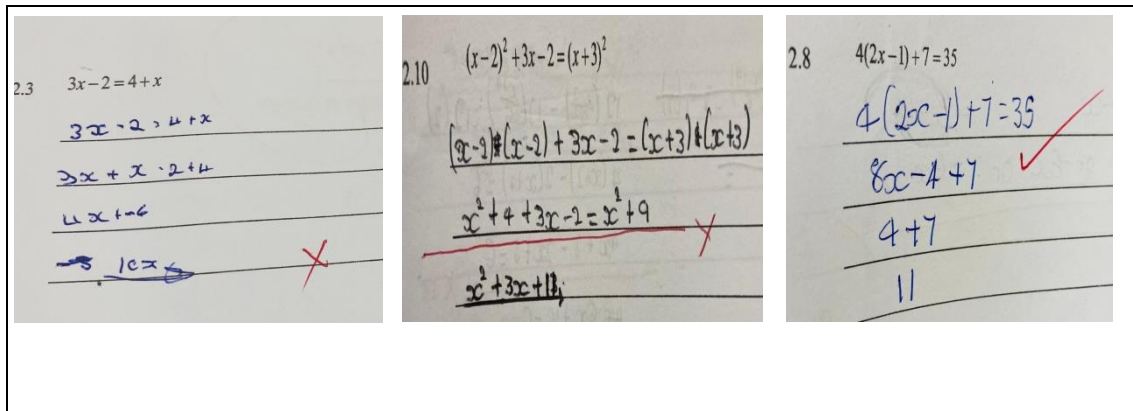 2.3 3x-2=4+x
3x-2=4+x
3x+x-2+4
4x+-6
10x
2.10 (x-2)²+3x-2=(x+3)²
(x-2)(x-2)+3x-2=(x+3)(x+3)
x²+4+3x-2=x²+9
x²+3x+11
2.8 4(2x-1)+7=35
4(2x-1)+7=35
8x-4+7
4+7
11